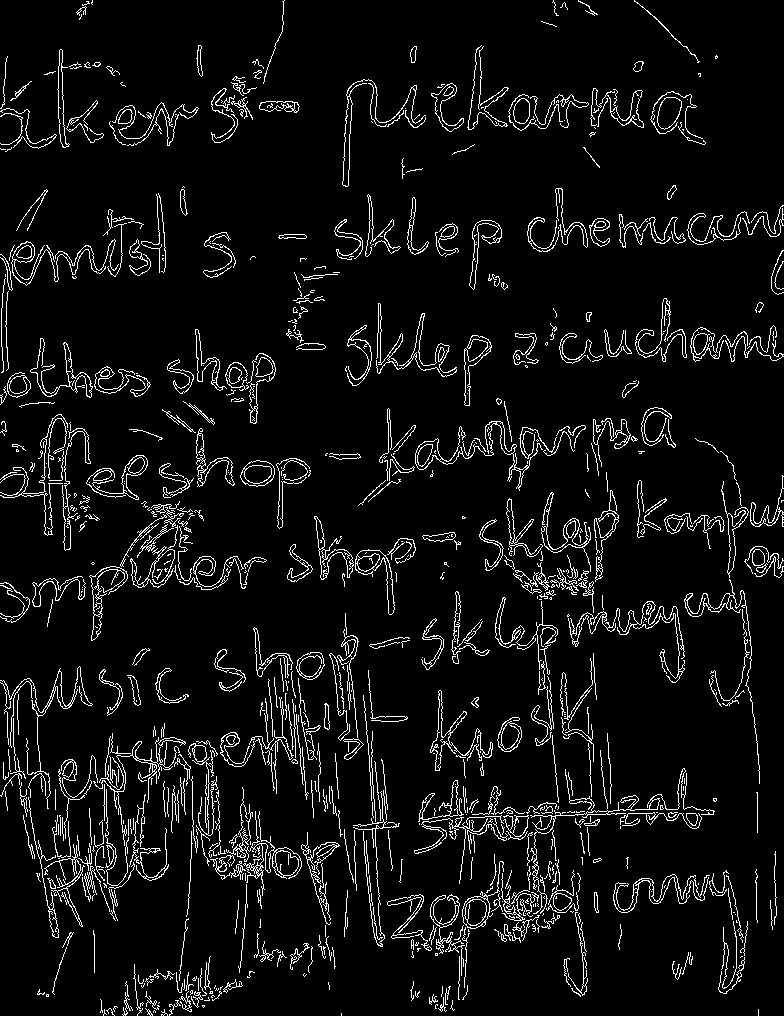 aker's - piekarnia
hemist's - sklep chemiczn
othes shop - sklep z ciuchami
offeeshop - kawiarnia
omputer shop - sklep kompu
music shop - sklep muzyczny
newsagent's - kiosk
pet shop - sklep z zoo
zoologiczny